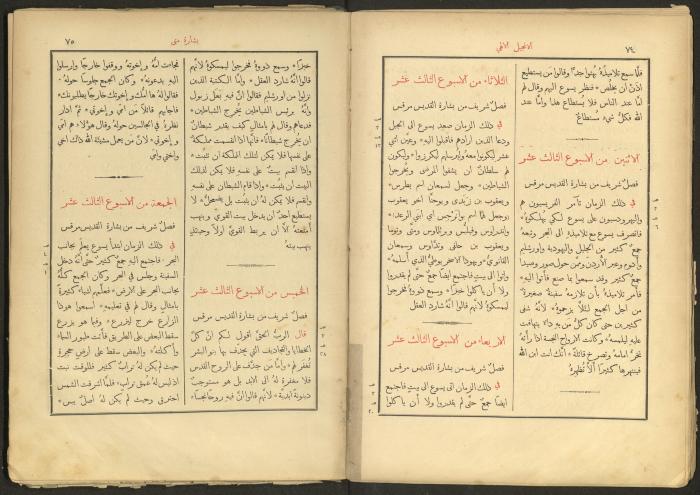 ٧٤
الانجيل الالهي
فلما سمع تلاميذهُ بهتوا جدًا وقالوا من يستطيع
اذن ان يخلص * فنظر يسوع اليهم وقال لهم
امَّا عند الناس فلا يُستطاع هذا وامَّا عند
الله فكلُّ شيءٍ مستطاعٌ
الاثنين من الاسبوع الثالث عشر
فصلٌ شريف من بشارة القديس مرقس
في ذلك الزمان تآمر الفريسيون مع
والهيرودسيون على يسوع لكي يهلكوهُ *
فانصرف يسوع مع تلاميذه الى البحر وتبعهُ
جمعٌ كثير من الجليل واليهودية واورشليم
وأدوم وعبر الأردن وممَّن حول صور وصيدا
جمعٌ كثير وقد سمعوا بما صنع فأتوا اليهِ *
فأمر تلاميذهُ بأن تلازمهُ سفينة صغيرة
من اجل الجمع لئلَّا يزحموهُ * لانهُ شفى
كثيرين حتى كان كلُّ من بهِ دالا يتهافت
عليه ليلمسهُ * وكانت الارواح النجسة اذا رأتهُ
تخرُّ امامهُ وتصرخ قائلةً * انك انت ابن الله
فينتهرها كثيرًا ألَّا تُظهِرهُ
الثلاثاء من الاسبوع الثالث عشر
فصلٌ شريف من بشارة القديس مرقس
في ذلك الزمان صعد يسوع الى الجبل
ودعا الذين ارادهم فاقبلوا اليه * وعين اثني
عشر ليكونوا معهُ وليرسلهم ليكرزوا * وليكون
لهم سلطان ان يشفوا المرضى ويخرجوا
الشياطين * وجعل لسمعان اسم بطرس *
ويعقوب بن زبدى ويوحنا اخو يعقوب
وجعل لهما اسم بوانرجس اي ابني الرعد *
واندراوس وفيلبس وبرثلاوس ومتى وتوما
ويعقوب بن حلفى وتدَّاوس وسمعان
القانويَّ * ويهوذا الاسخريوطيَّ الذي أسلمهُ *
وأتوا الى بيتٍ فاجتمع ايضًا جمعٌ حتى لم يقدروا
ولا أن ياكلوا خبزًا * وسمع ذووهُ فخرجوا
ليمسكوهُ لانهم قالوا انهُ شارد العقل
الاربعاء من الاسبوع الثالث عشر
فصلٌ شريف من بشارة القديس مرقس
في ذلك الزمان اتى يسوع الى بيتٍ فاجتمع
ايضًا جمعٌ حتى لم يقدروا ولا أن ياكلوا
بشارة متى
٧٥
خبزًا * وسمع ذووهُ فخرجوا ليمسكوهُ لانهم
قالوا انهُ شارد العقل * وامَّا الكتبة الذين
نزلوا من اورشليم فقالوا انَّ فيهِ بَعْل زبول
وانهُ برئيس الشياطين يخرج الشياطين *
فدعاهم وقال لهم بامثالٍ كيف يقدر شيطانٌ
ان يخرج شيطانًا * فانها اذا انقسمت مملكةٌ
على نفسها فلا يمكن لتلك المملكة ان تثبت *
واذا انقسم بيتٌ على نفسهِ فلا يمكن لذلك
البيت ان يثبت * واذا قام الشيطان على نفسهِ
وانقسم فلا يمكن لهُ ان يثبت بل يضمحلُّ * لا
يستطيع احدٌ ان يدخل بيت القويّ وينهب
أمتعتهُ الَّا ان يربط القويَّ اولًا وحينئذٍ
ينهب بيتهُ
الخميس من الاسبوع الثالث عشر
فصلٌ شريف من بشارة القديس مرقس
قال الربُّ الحقَّ اقول لكم انَّ كلَّ
الخطايا والتجاديف التي يجدف بها بنو البشر
تُغفَر لهم * وامَّا من جدَّف على الروح القدس
فلا مغفرة لهُ الى الابد بل هو مستوجبٌ
دينونةً ابديةً * لانهم قالوا انَّ فيهِ روحًا نجسًا *
فجاءت امُّهُ واخوتهُ ووقفوا خارجًا وارسلوا
اليهِ يدعونهُ * وكان الجمع جلوسًا حولهُ
فقالوا لهُ ها امُّك واخوتك خارجًا يطلبونك *
فاجابهم قائلًا مَن امي واخوتي * ثمَّ ادار
نظرهُ في الجالسين حولهُ وقال هؤلاء هم امي
واخوتي * لانَّ من يعمل مشيئة الله ذاك اخي
واختي وامي
الجمعة من الاسبوع الثالث عشر
فصلٌ شريف من بشارة القديس مرقس
في ذلك الزمان ابتدأ يسوع يعلّم بجانب
البحر * فاجتمع اليهِ جمعٌ كثيرٌ حتى انهُ دخل
السفينة وجلس في البحر وكان الجمع كلُّهُ
بجانب البحر على الارض * فعلَّمهم اشياء كثيرةً
بامثالٍ وقال لهم في تعليمهِ * اسمعوا هوذا
الزارع خرج ليزرع * وفيما هو يزرع
سقط البعض على الطريق فأتت طيور السماء
وأكلتهُ * والبعض سقط على ارضٍ حجرية
حيث لم يكن لهُ ترابٌ كثير فللوقت نبت
اذ ليس لهُ عمق تراب * فلمَّا اشرقت الشمس
احترق وحيث لم يكن لهُ اصلٌ يبس *